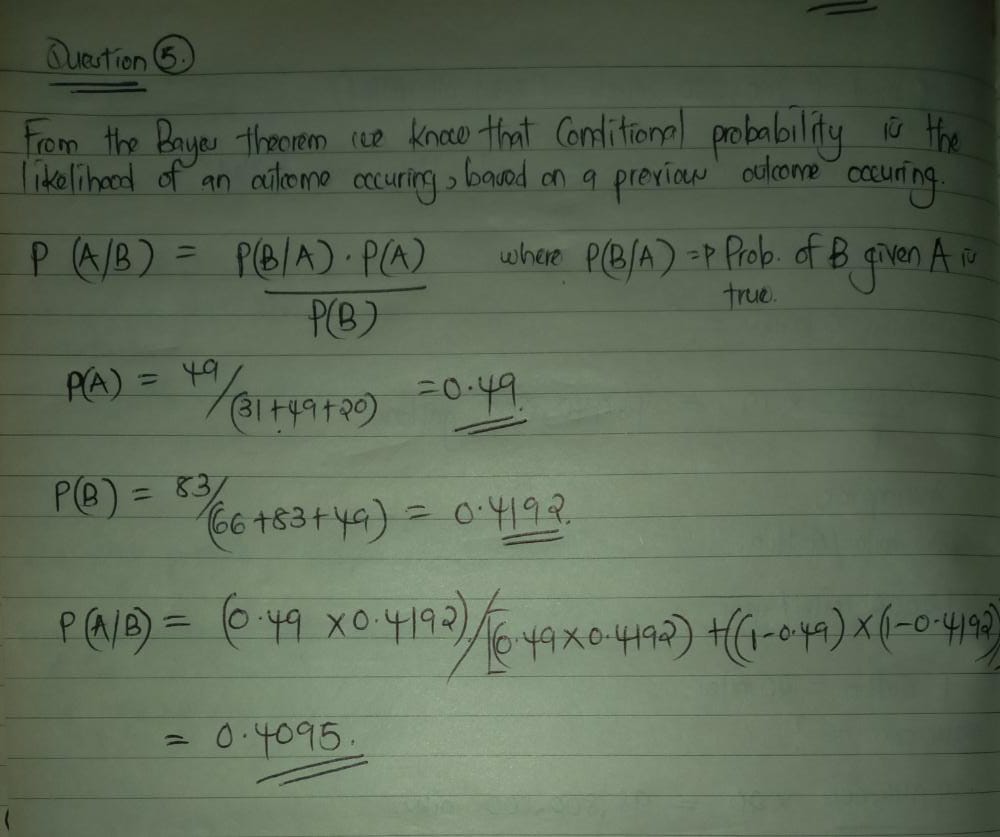 Question 5.
From the Bayes theorem we know that Conditional probability is the
likelihood of an outcome occuring, based on a previous outcome occuring.
P (A/B) = P(B/A) · P(A) where P(B/A) => Prob. of B given A is
P(B) true.
P(A) = 49/(31+49+20) = 0.49.
P(B) = 83/(66+83+49) = 0.4192.
P(A/B) = (0.49 x0.4192)/[(0.49x0.4192) +((1-0.49)x(1-0.4192)
= 0.4095.